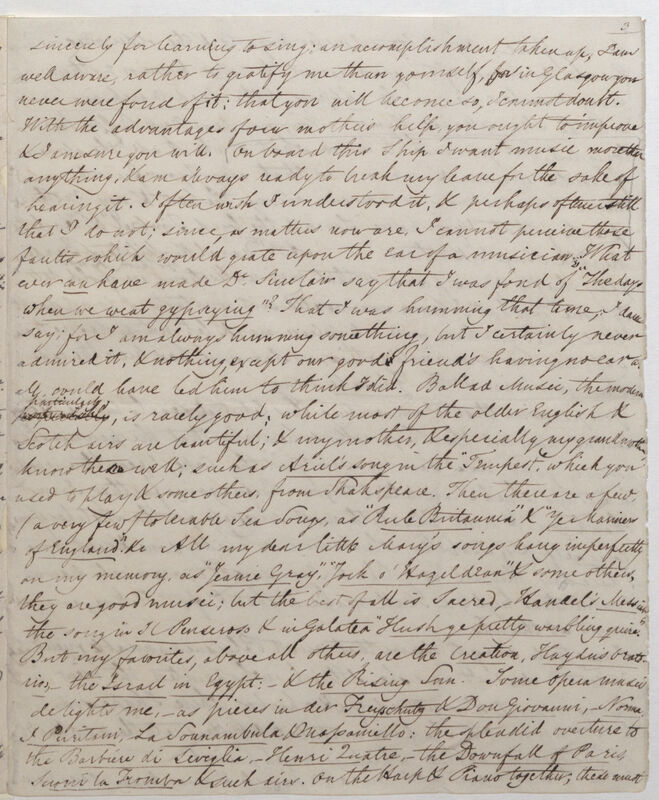 3
sincerely for learning to sing: an accomplishment taken up, I am
well aware, rather to gratify me than yourself, for in Glasgow you
never were fond of it: that you will become so, I cannot doubt.
With the advantages of our mother's help, you ought to improve
& I am sure you will. On board this Ship I want music more than
anything, & am always ready to break my leave for the sake of
hearing it. I often wish I understood it, & perhaps oftener still
that I do not; since, as matters now are, I cannot perceive those
faults which would grate upon the ear of a musician. What
ever can have made Dr. Sinclair say that I was fond of "The days
when we went gypsying"? That I was humming that time, I dare
say; for I am always humming something, but I certainly never
admired it, & nothing except our good friend's having no ear a
all could have led him to think I did. Ballad Music, the modern
particularly,
is rarely good; while most of the older English &
Scotch airs are beautiful; & my mother, & especially my grandmother
know them well; such as Ariel's song in the "Tempest", which you
used to play & some others, from Shakspeare. Then there are a few,
(a very few) tolerable Sea Songs, as "Rule Britannia" & "Ye Mariners
of England". &c All my dear little Mary's songs hang imperfectly
on my memory, as "Jeanie Gray", "Jock o' Hazeldean" & some others,
they are good music; but the best of all is Sacred,- Handel's Messiah
the song in Il Penseroso & in Galatea "Hush ye pretty warbling quire"
But my favorites, above all others, are the Creation, Haydn's orato-
rio,- the Israel in Egypt,- & the Rising Sun. Some opera music
delights me,- as pieces in der Freyschutz & Don Giovanni,- Norma
I Puritani, La Sonnambula & Massaniello: the splendid overture to
the Barbiere di Seviglia,- Henri Quatre,- the Downfall of Paris
Suoni la Tromba & such airs. On the Harp & Piano together, these must